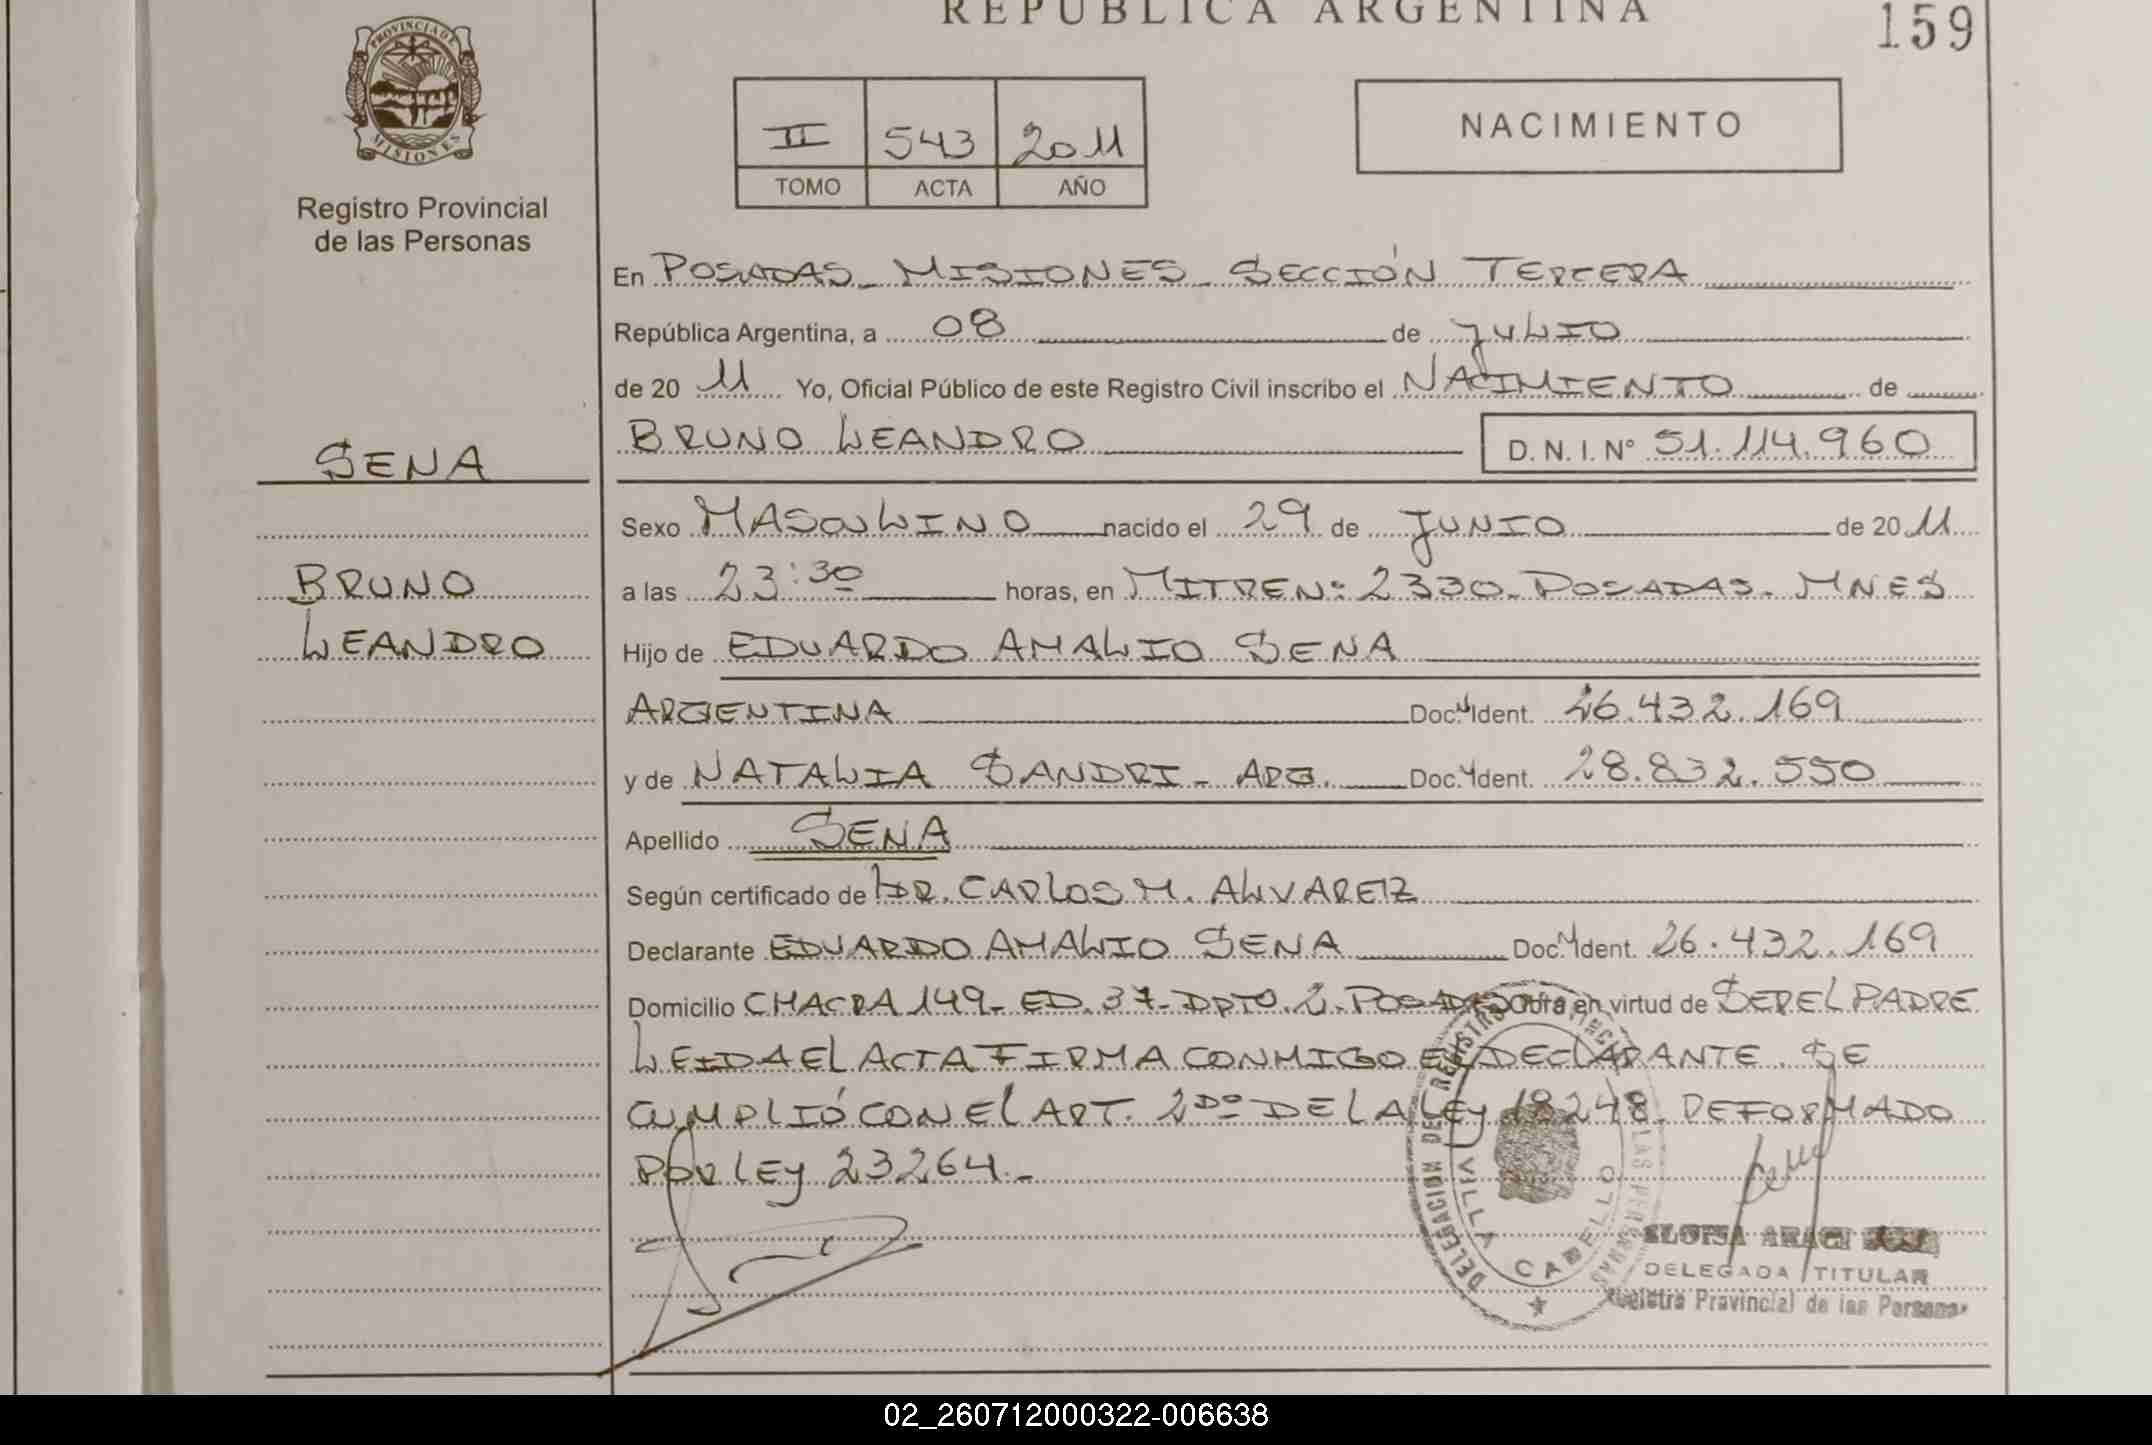 REPUBLICA ARGENTINA
159
PROVINCIA DE
MISIONES
Registro Provincial
de las Personas
II 543 2011
TOMO ACTA AÑO
NACIMIENTO
En POSADAS_ MISIONES_ SECCIÓN TERCERA
República Argentina, a 08 de JULIO
de 20 11 Yo, Oficial Público de este Registro Civil inscribo el NACIMIENTO de
BRUNO LEANDRO D. N. I. Nº 51.114.960
SENA
Sexo MASCULINO nacido el 29 de JUNIO de 20 11
BRUNO
a las 23:30 horas, en MITRE Nº 2330_ POSADAS_ MNES
LEANDRO
Hijo de EDUARDO AMALIO SENA
ARGENTINA Doc. Ident. 26.432.169
y de NATALIA SANDRI_ ARG. Doc. Ident. 28.832.550
Apellido SENA
Según certificado de DR. CARLOS M. ALVAREZ
Declarante EDUARDO AMALIO SENA Doc. Ident. 26.432.169
Domicilio CHACRA 149_ ED. 37_ DPTO. 2_ POSADAS Obra en virtud de SER EL PADRE
LEIDA EL ACTA FIRMA CONMIGO EL DECLARANTE. SE
CUMPLIÓ CON EL ART. 2DO DE LA LEY 18248 REFORMADO
POR LEY 23264._
DELEGACION DEL REGISTRO PROVINCIAL DE LAS PERSONAS
VILLA CABELLO
ELOISA
DELEGADA TITULAR
Registro Provincial de las Personas
02_260712000322-006638